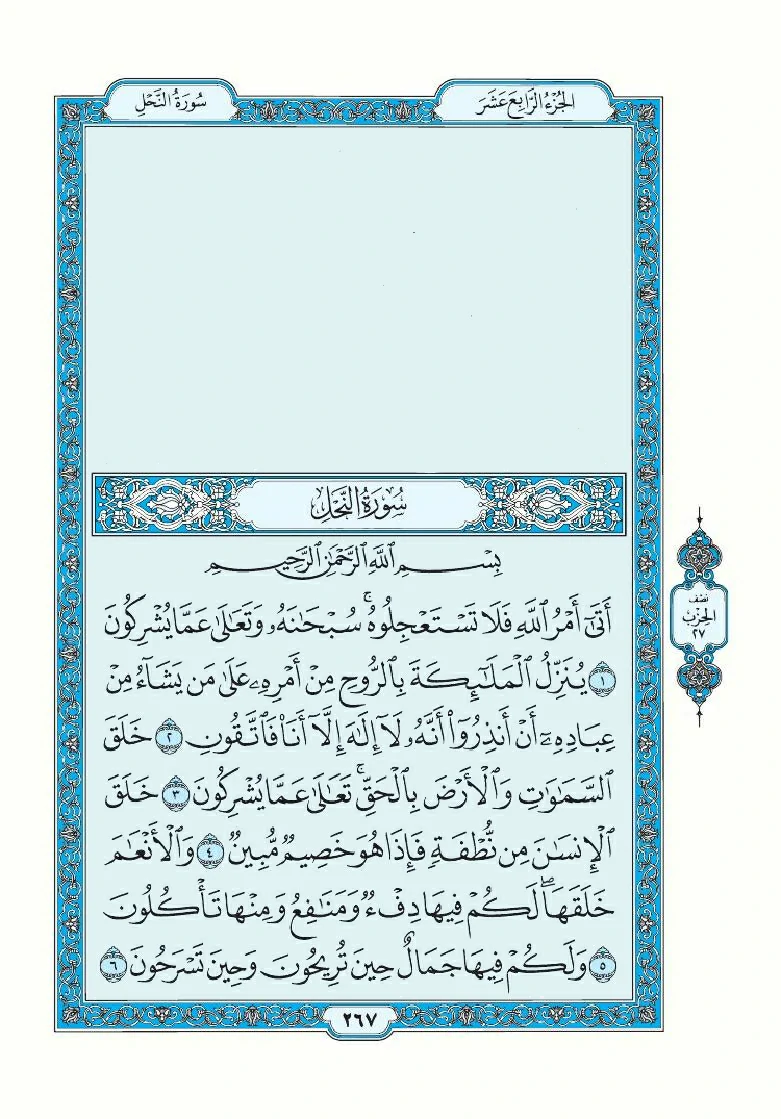 الجُزْءُ الرَّابِعَ عَشَرَ
سُورَةُ النَّحْلِ
سُورَةُ النَّحْلِ
بِسْمِ ٱللَّهِ ٱلرَّحْمَٰنِ ٱلرَّحِيمِ
أَتَىٰٓ أَمْرُ ٱللَّهِ فَلَا تَسْتَعْجِلُوهُۚ سُبْحَٰنَهُۥ وَتَعَٰلَىٰ عَمَّا يُشْرِكُونَ
١ يُنَزِّلُ ٱلْمَلَٰٓئِكَةَ بِٱلرُّوحِ مِنْ أَمْرِهِۦ عَلَىٰ مَن يَشَآءُ مِنْ
عِبَادِهِۦٓ أَنْ أَنذِرُوٓا۟ أَنَّهُۥ لَآ إِلَٰهَ إِلَّآ أَنَا۠ فَٱتَّقُونِ ٢ خَلَقَ
ٱلسَّمَٰوَٰتِ وَٱلْأَرْضَ بِٱلْحَقِّۚ تَعَٰلَىٰ عَمَّا يُشْرِكُونَ ٣ خَلَقَ
ٱلْإِنسَٰنَ مِن نُّطْفَةٍ فَإِذَا هُوَ خَصِيمٌ مُّبِينٌ ٤ وَٱلْأَنْعَٰمَ
خَلَقَهَاۖ لَكُمْ فِيهَا دِفْءٌ وَمَنَٰفِعُ وَمِنْهَا تَأْكُلُونَ
٥ وَلَكُمْ فِيهَا جَمَالٌ حِينَ تُرِيحُونَ وَحِينَ تَسْرَحُونَ ٦
نصف
الحزب
٢٧
٢٦٧